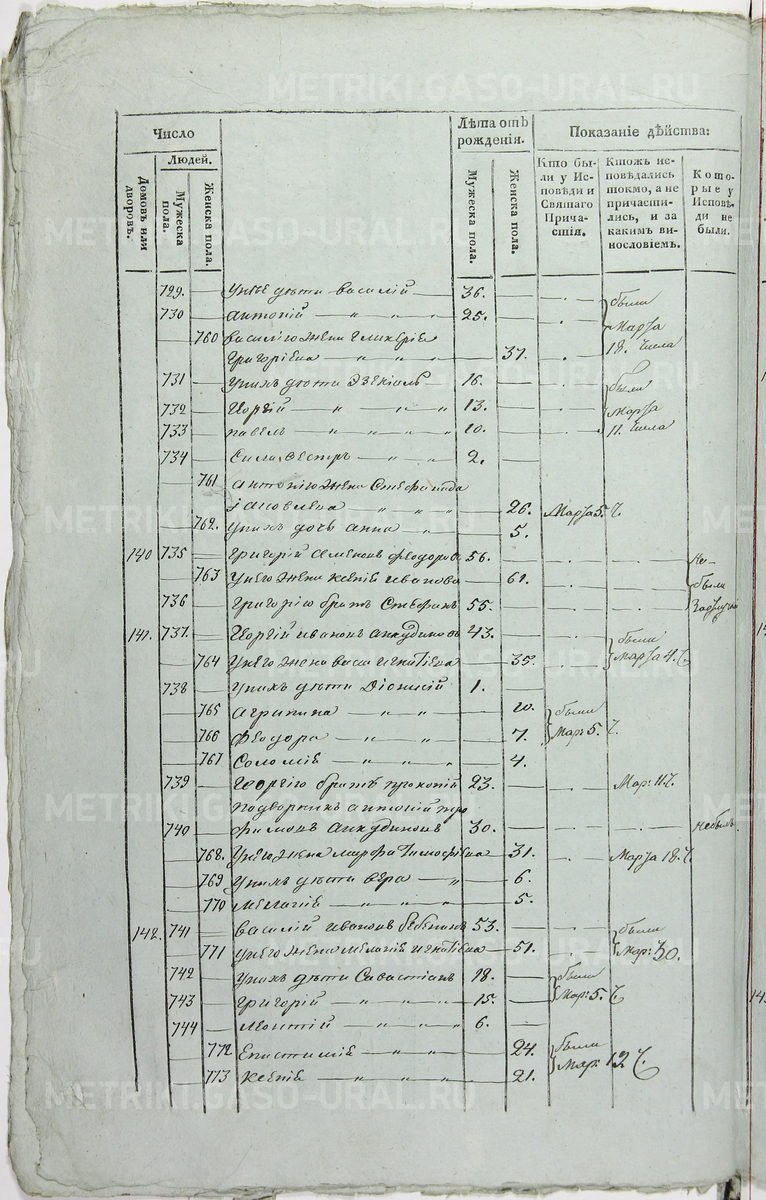 METRIKI.GASO-URAL.RU
Число
Лѣта отъ рожденія.
Показаніе дѣйства:
Людей.
Домовъ или дворовъ.
Мужеска пола.
Женска пола.
Мужеска пола.
Женска пола.
Кто были у Исповѣди и Святаго Причастія.
Ктожъ исповѣдались токмо, а не причастились, и за какимъ винословіемъ.
Которые у Исповѣди не были.
729. унее дѣти Василій 36.
730 Антоній „ „ „ 25. были
760 Василіо жена Гликеріе Марта
Григоріевна „ „ „ 37. 18. Числа
731 унихъ дѣти 16. были
732 Георгій „ „ „ 13. Марта
733 Павелъ „ „ „ „ 10. 11. Числа
734 „ „ 2.
761 Антоніо жена Стефанида
Іаковлева „ „ 26. Марта 5. Ч.
762. унихъ дочь Анна „ 5.
140 735 Григорій Семеновъ Федоровъ 56. не
763 унего жена Ксеніе Иванова 61. были
736 Григоріо братъ Стефанъ 55.
141. 737. Георгій Ивановъ Анкудиновъ 43. были
764 унего жена Васа Игнатіева 35. Марта 4. Ч.
738 унихъ дѣти Діонисій 1.
765 Агрипина „ „ 10. были
766 Феодора „ „ 7. Мар: 5. Ч.
767 Соломіе „ „ „ 4.
739 Георгіо братъ Прокопій 23. Мар: 11 Ч.
Антоній Тро
740 фимовъ Анкудиновъ 30. небылъ.
768. унего жена Марфа Тимофѣева 31. Марта 18. Ч.
769 унихъ дѣти Вера „ 6.
770 Мелагіе „ „ „ 5.
142. 741 Василій Ивановъ 53. были
771 унего жена Мелагіе Игнатіева 51. Мар: 30.
742 унихъ дѣти Савастіанъ 18. были
743 Григорій „ „ „ 15. Мар: 5. Ч.
744 „ „ „ 6.
772 Епистиміе „ „ 24. были
773 Ксеніе „ „ „ 21. Мар: 12 Ч.